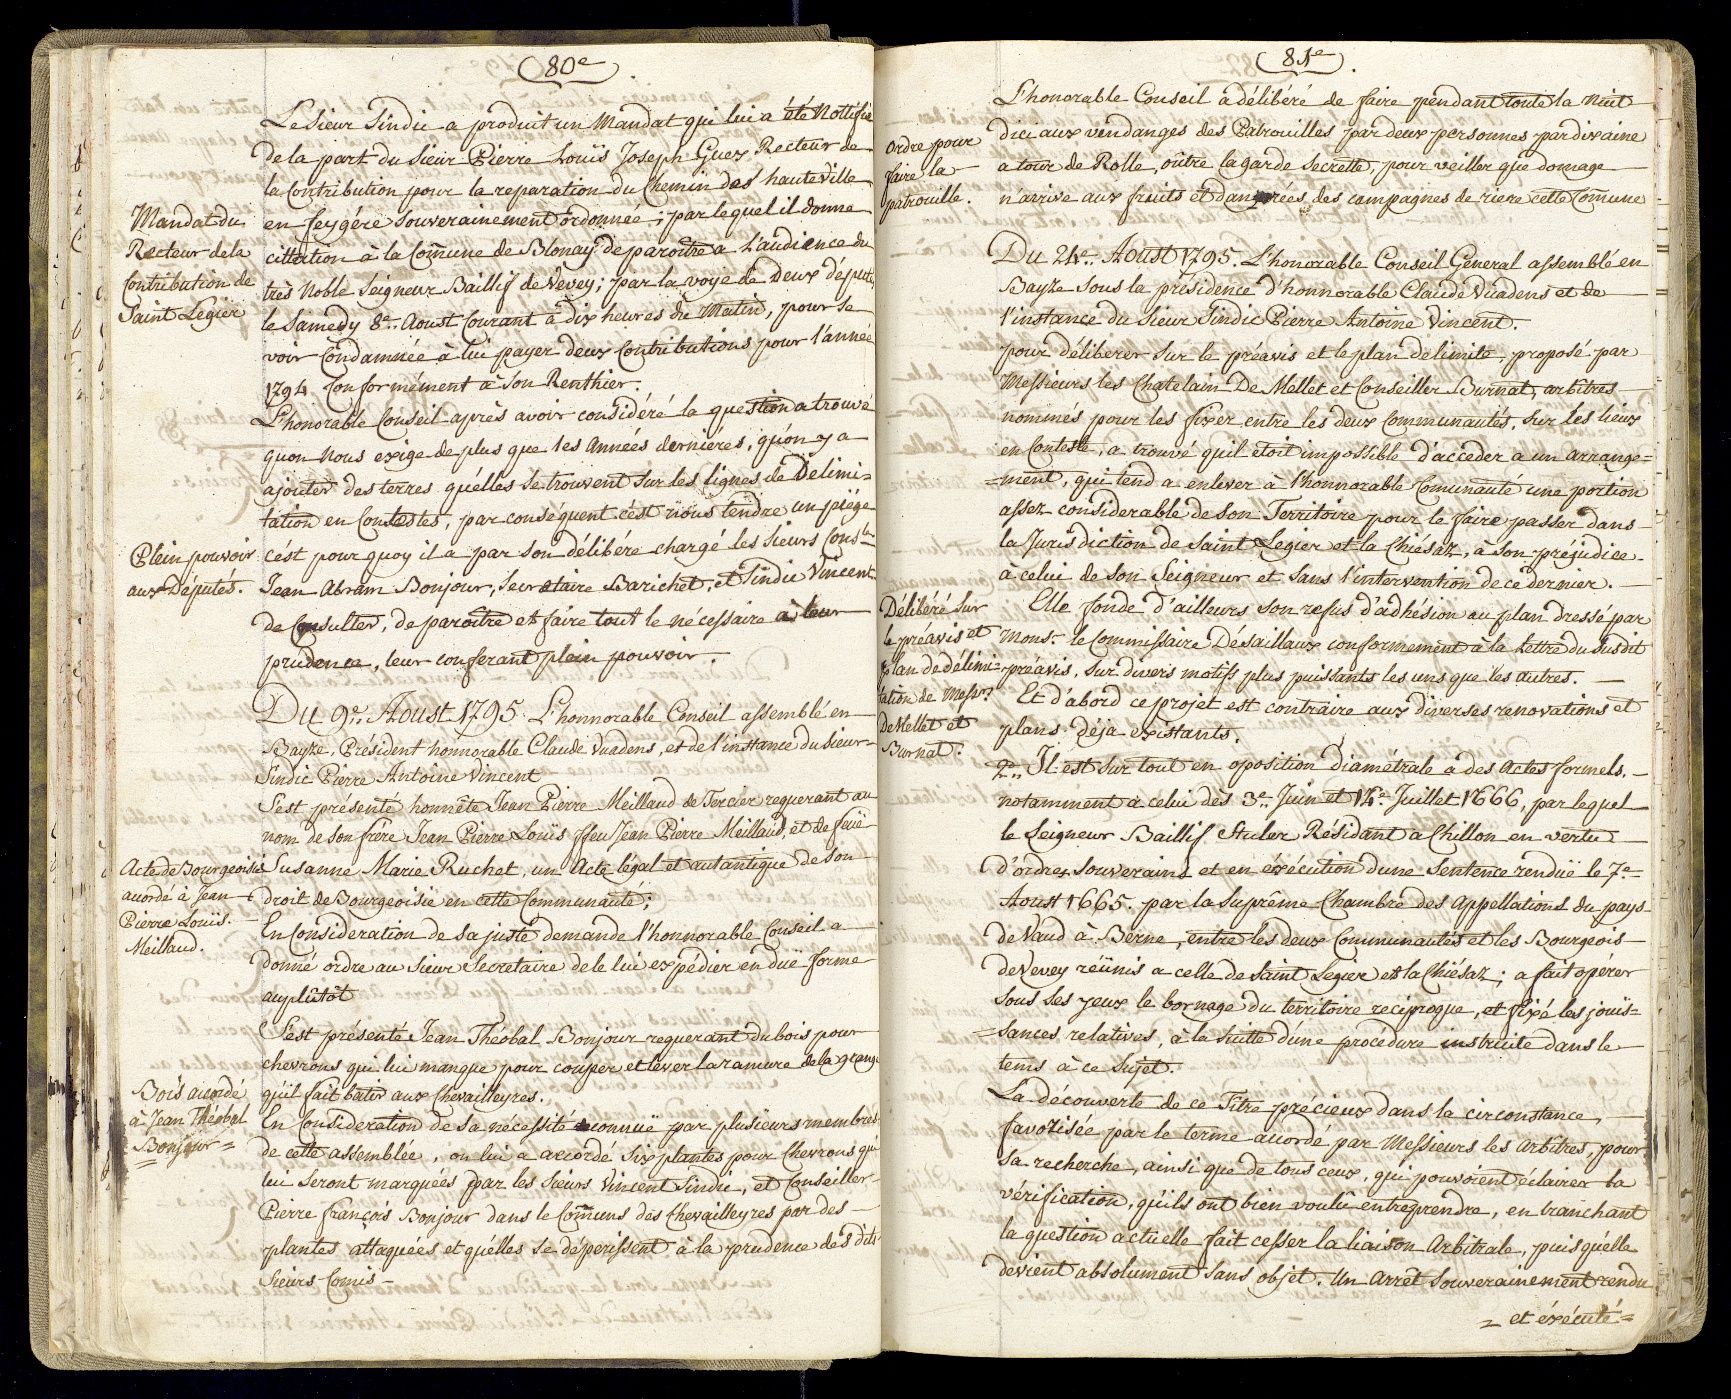 80e
Le Sieur Sindic a produit un Mandat qui lui a été Nottifié
de la part du Sieur Pierre Louïs Joseph Guex Recteur de
la Contribution pour la reparation du Chemin des hauteville
Mandat du
Recteur de la
Contribution de
Saint Legier
en feygére Souverainement ordonnée ; par lequel il donne
cittation à la Comune de Blonay de paroître a l'audience du
très Noble Seigneur Baillif de Vevey ; par la voye de Deux députés,
le Samedy 8e.. Aoust Courant à dix heures du Matin, pour se
voir Condamnée à lui payer deux Contributions pour l'année
1794 Conformément à Son Renthier.
L'honorable Conseil après avoir considéré la question a trouvé
quon Nous exige de plus que les Années derniéres, qu'on y a
ajouter des terres qu'élles se trouvent Sur les lignes de Delimi=
tation en Contestes, par conséquent c'ést nous tendre un piége
Plein pouvoir
aux Députes.
cést pour quoy il a par Son délibéré chargé les Sieurs Conser
Jean Abram Bonjour, Secretaire Barichet, et Sindic Vincent
de Consulter, de paroître et faire tout le nécessaire à leur
prudence, leur conferant plein pouvoir.
Du 9e.. Aoust 1795. L'honnorable Conseil assemblé en
Bayze, Président honnorable Claude Vuadens, et de l'instance du Sieur
Sindic Pierre Antoine Vincent
S'est présenté honnête Jean Pierre Meillaud de Tercier requerant au
nom de son frère Jean Pierre Louïs ffeu Jean Pierre Meillaud, et de feüe
Acte de Bourgeoisie
accordé à Jean
Pierre Louïs
Meillaud.
Susanne Marie Ruchet, un Acte légal et autantique de son
droit de Bourgeoisie en cette Communauté ;
En Consideration de sa juste demande l'honnorable Conseil a
donné ordre au Sieur Secretaire de le lui expédier en duë forme
auplûtôt
S'est présenté Jean Théobal Bonjour requerant du bois pour
chevrons qui lui manque pour couper et lever la ramure de la grange
qu'il fait bâtir aux Chevalleyres.
Bois accordé
à Jean Théobal
= Bonjour =
En Consideration de sa nécessité connuë par plusieurs membres
de cette assemblée, on lui a accordé Six plantes pour Chevrons qui
lui Seront marquées par les Sieurs Vincent Sindic, et Conseiller
Pierre françois Bonjour dans le Comuns des Chevailleyres par des
plantes attaquées et qu'élles se déperissent à la prudence des dits
Sieurs Comis
81e
L'honorable Conseil a délibéré de faire pendant toute la Nuit
ordre pour
faire la
patrouille.
dici aux vendanges des Patrouilles par deux personnes par dixaine
a tour de Rolle, oûtre la garde Secrette, pour veiller que domage
n'arrive aux fruits et danrées des campagnes de riere cette Comune
Du 24e.. Aoust 1795. L'honorable Conseil General assemblé en
Bayze sous la présidence d'honnorable Claude Vuadens et de
l'instance du Sieur Sindic Pierre Antoine Vincent.
pour déliberer Sur le préavis et le plan de limite, proposé par
Messieurs les Chatelain De Mellet et Conseiller Burnat, arbitres
nommés pour les fixer entre les deux Communautés, Sur les lieux
en Conteste, a trouvé quil étoit impossible d'acceder a un arrange=
=ment, qui tend a enlever à l'honnorable Comunauté une portion
assez considerable de Son Territoire pour le faire passer dans
la Jurisdiction de Saint Legier et la Chiésaz, à Son préjudice
à celui de Son Seigneur et Sans l'intervention de ce dernier.
Délibéré Sur
le préavis et
plan de délimi=
tation de Messrs
De Mellet et
Burnat.
Elle fonde d'ailleurs Son refus d'adhésion au plan dressé par
Monsr. le Commissaire Désaillaux conformement à la Lettre du Susdit
préavis, Sur divers motifs plus puissants les uns que les autres.
Et d'abord ce projet est contraire aux diverses renovations et
plans déja existants.
2o.. Il est Sur tout en oposition Diamétrale a des Actes formels,
notamment à celui dès 3e.. Juin et 14e. Juillet 1666, par lequel
le Seigneur Baillif Stuler Résidant a Chillon en vertu
d'ordres Souverains et en éxécution d'une Sentence renduë le 7e
Aoust 1665. par la Suprême Chambre des Appellations du pays
de Vaud à Berne, entre les deux Communautés et les Bourgeois
de Vevey réünis a celle de Saint Legier et la Chiésaz ; a fait opérer
Sous Ses yeux le bornage du territoire reciproque, et fixé les jouïs=
=sances relatives, à la Suitte d'une procédure instruite dans le
tems à ce Sujet.
La découverte de ce Titre précieux dans la circonstance,
favorisée par le terme accordé par Messieurs les Arbitres, pour
Sa recherche, ainsi que de tous ceux, qui pouvoient éclairer la
vérification, qu'ils ont bien voulû entreprendre, en tranchant
la question actuelle fait cesser la liaison Arbitrale, puisqu'elle
devient absolument Sans objet. Un Arrêt Souverainement rendu
= et éxécuté =